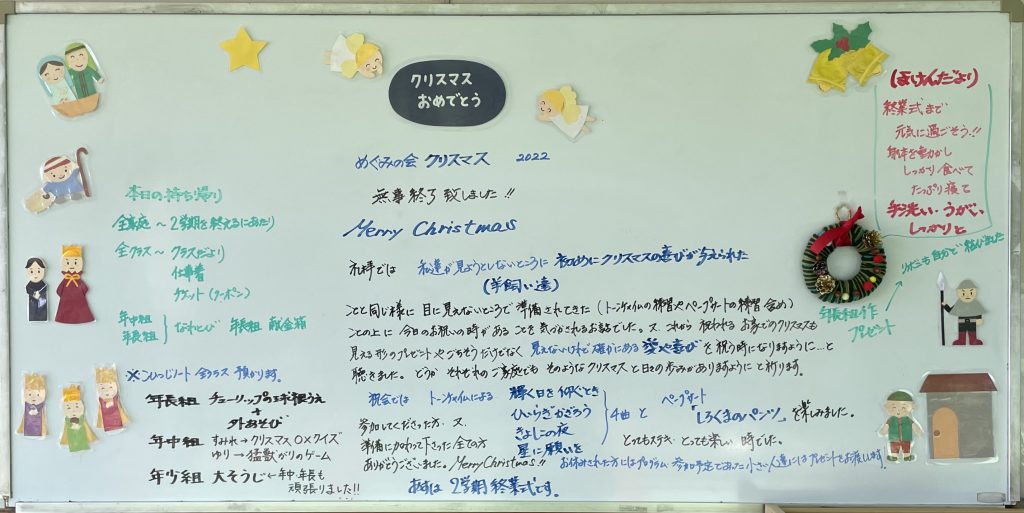 クリスマス
おめでとう
めぐみの会 クリスマス 2022
無事終了致しました!!
Merry Christmas
礼拝では 私達が見ようとしないところに 初めにクリスマスの喜びが与えられた
(羊飼い達)
ことと同じ様に 目に見えないところで準備されてきた (トーンチャイムの練習やペープサートの練習含め)
ことの上に 今日のお祝いの時がある ことを気づかされるお話でした。又、これから祝われるお家でのクリスマスも
見える形のプレゼントやごちそうだけでなく 見えないけれど確かにある 愛や喜び を祝う時になりますように…と
聴きました。どうか それぞれのご家庭でも そのようなクリスマスと日々の歩みがありますように と祈ります。
祝会では トーンチャイムによる
輝く日を仰ぐとき
ひいらぎかざろう
きよしこの夜
星に願いを
4曲と ペープサート
「しろくまのパンツ」を楽しみました。
とってもステキ、とっても楽しい時でした。
参加してくださった方、又、
準備にかかわって下さった全ての方
ありがとうございました。Merry Christmas!!
お休みされた方にはプログラム・参加予定であった小さい人達にはプレゼントをお渡しします。
あすは 2学期終業式です。
本日の持ち帰り
全家庭 ~ 2学期を終えるにあたり
全クラス ~ クラスだより
仕事着
チケット (クーポン)
年中組
年長組
なわとび 年長組 献金箱
※こひつじノート 全クラス 預かります。
年長組 チューリップの球根うえ
+
外あそび
年中組 すみれ→クリスマス〇×クイズ
ゆり→猛獣がりのゲーム
年少組 大そうじ ← 年中・年長も
頑張りました!!
(ほけんだより)
終業式まで
元気に過ごそう!!
身体を動かし
しっかり食べて
たっぷり寝て
手洗い・うがい
しっかりと
リボンも自分で結びました
年長組作
プレゼント